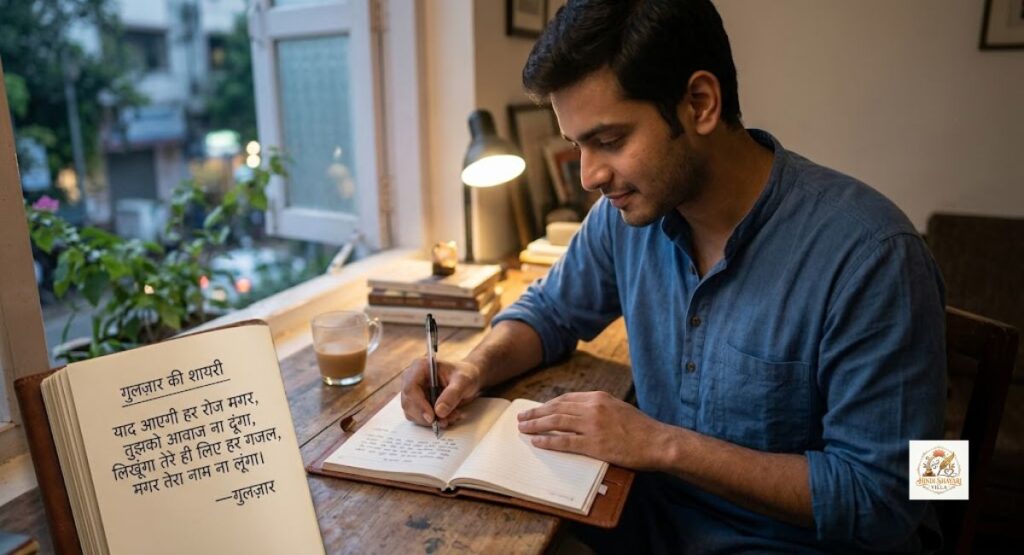 गुलज़ार की शायरी
याद आएगी हर रोज मगर,
तुझको आवाज ना दूंगा,
लिखूंगा तेरे ही लिए हर गजल,
मगर तेरा नाम ना लूंगा।
—गुलज़ार
HINDI SHAYARI
VILLA